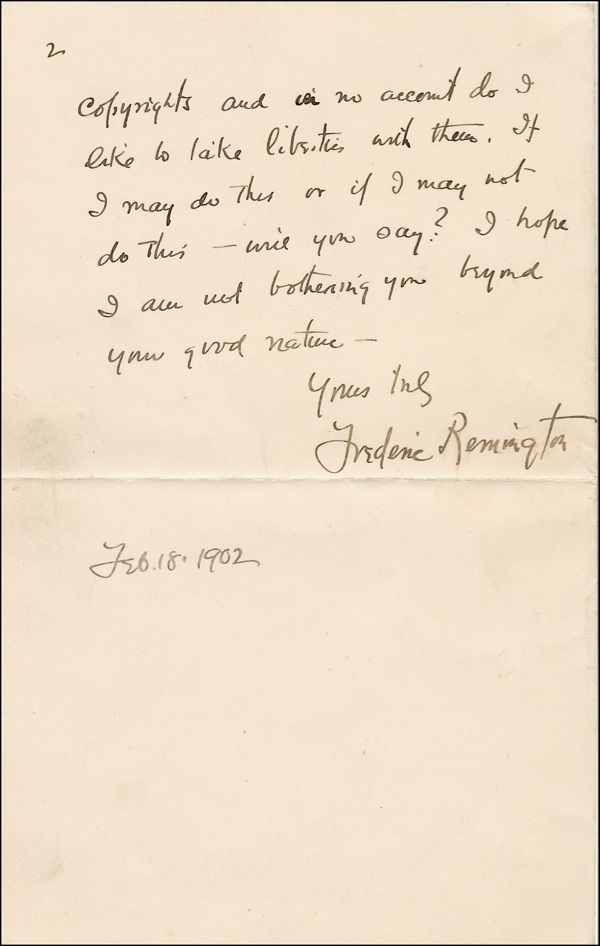 2
copyrights and in no account do I
like to take liberties with them. If
I may do this or if I may not
do this — will you say? I hope
I am not bothering you beyond
your good nature —
Yours
Frederic Remington
Feb. 18. 1902